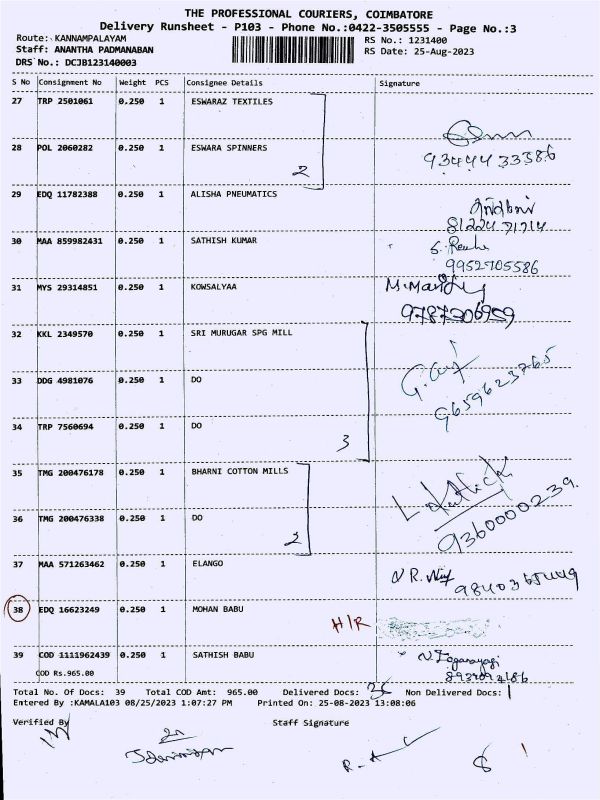 THE PROFESSIONAL COURIERS, COIMBATORE
Delivery Runsheet - P103 - Phone No.:0422-3505555 - Page No.:3
Route: KANNAMPALAYAM RS No.: 1231400
Staff: ANANTHA PADMANABAN RS Date: 25-Aug-2023
DRS No.: DCJB123140003
S No Consignment No Weight PCS Consignee Details Signature
27 TRP 2501061 0.250 1 ESWARAZ TEXTILES
28 POL 2060282 0.250 1 ESWARA SPINNERS
2 9344433386
29 EDQ 11782388 0.250 1 ALISHA PNEUMATICS
8122471714
30 MAA 859982431 0.250 1 SATHISH KUMAR
9952705586
31 MYS 29314851 0.250 1 KOWSALYAA
9787306959
32 KKL 2349570 0.250 1 SRI MURUGAR SPG MILL
33 DDG 4981076 0.250 1 DO
9659623765
34 TRP 7560694 0.250 1 DO
3
35 TMG 200476178 0.250 1 BHARNI COTTON MILLS
36 TMG 200476338 0.250 1 DO
2 9360000239.
37 MAA 571263462 0.250 1 ELANGO
38 EDQ 16623249 0.250 1 MOHAN BABU
H/R
39 COD 1111962439 0.250 1 SATHISH BABU
COD Rs.965.00
Total No. Of Docs: 39 Total COD Amt: 965.00 Delivered Docs: Non Delivered Docs: 1
Entered By :KAMALA103 08/25/2023 1:07:27 PM Printed On: 25-08-2023 13:08:06
Verified By Staff Signature